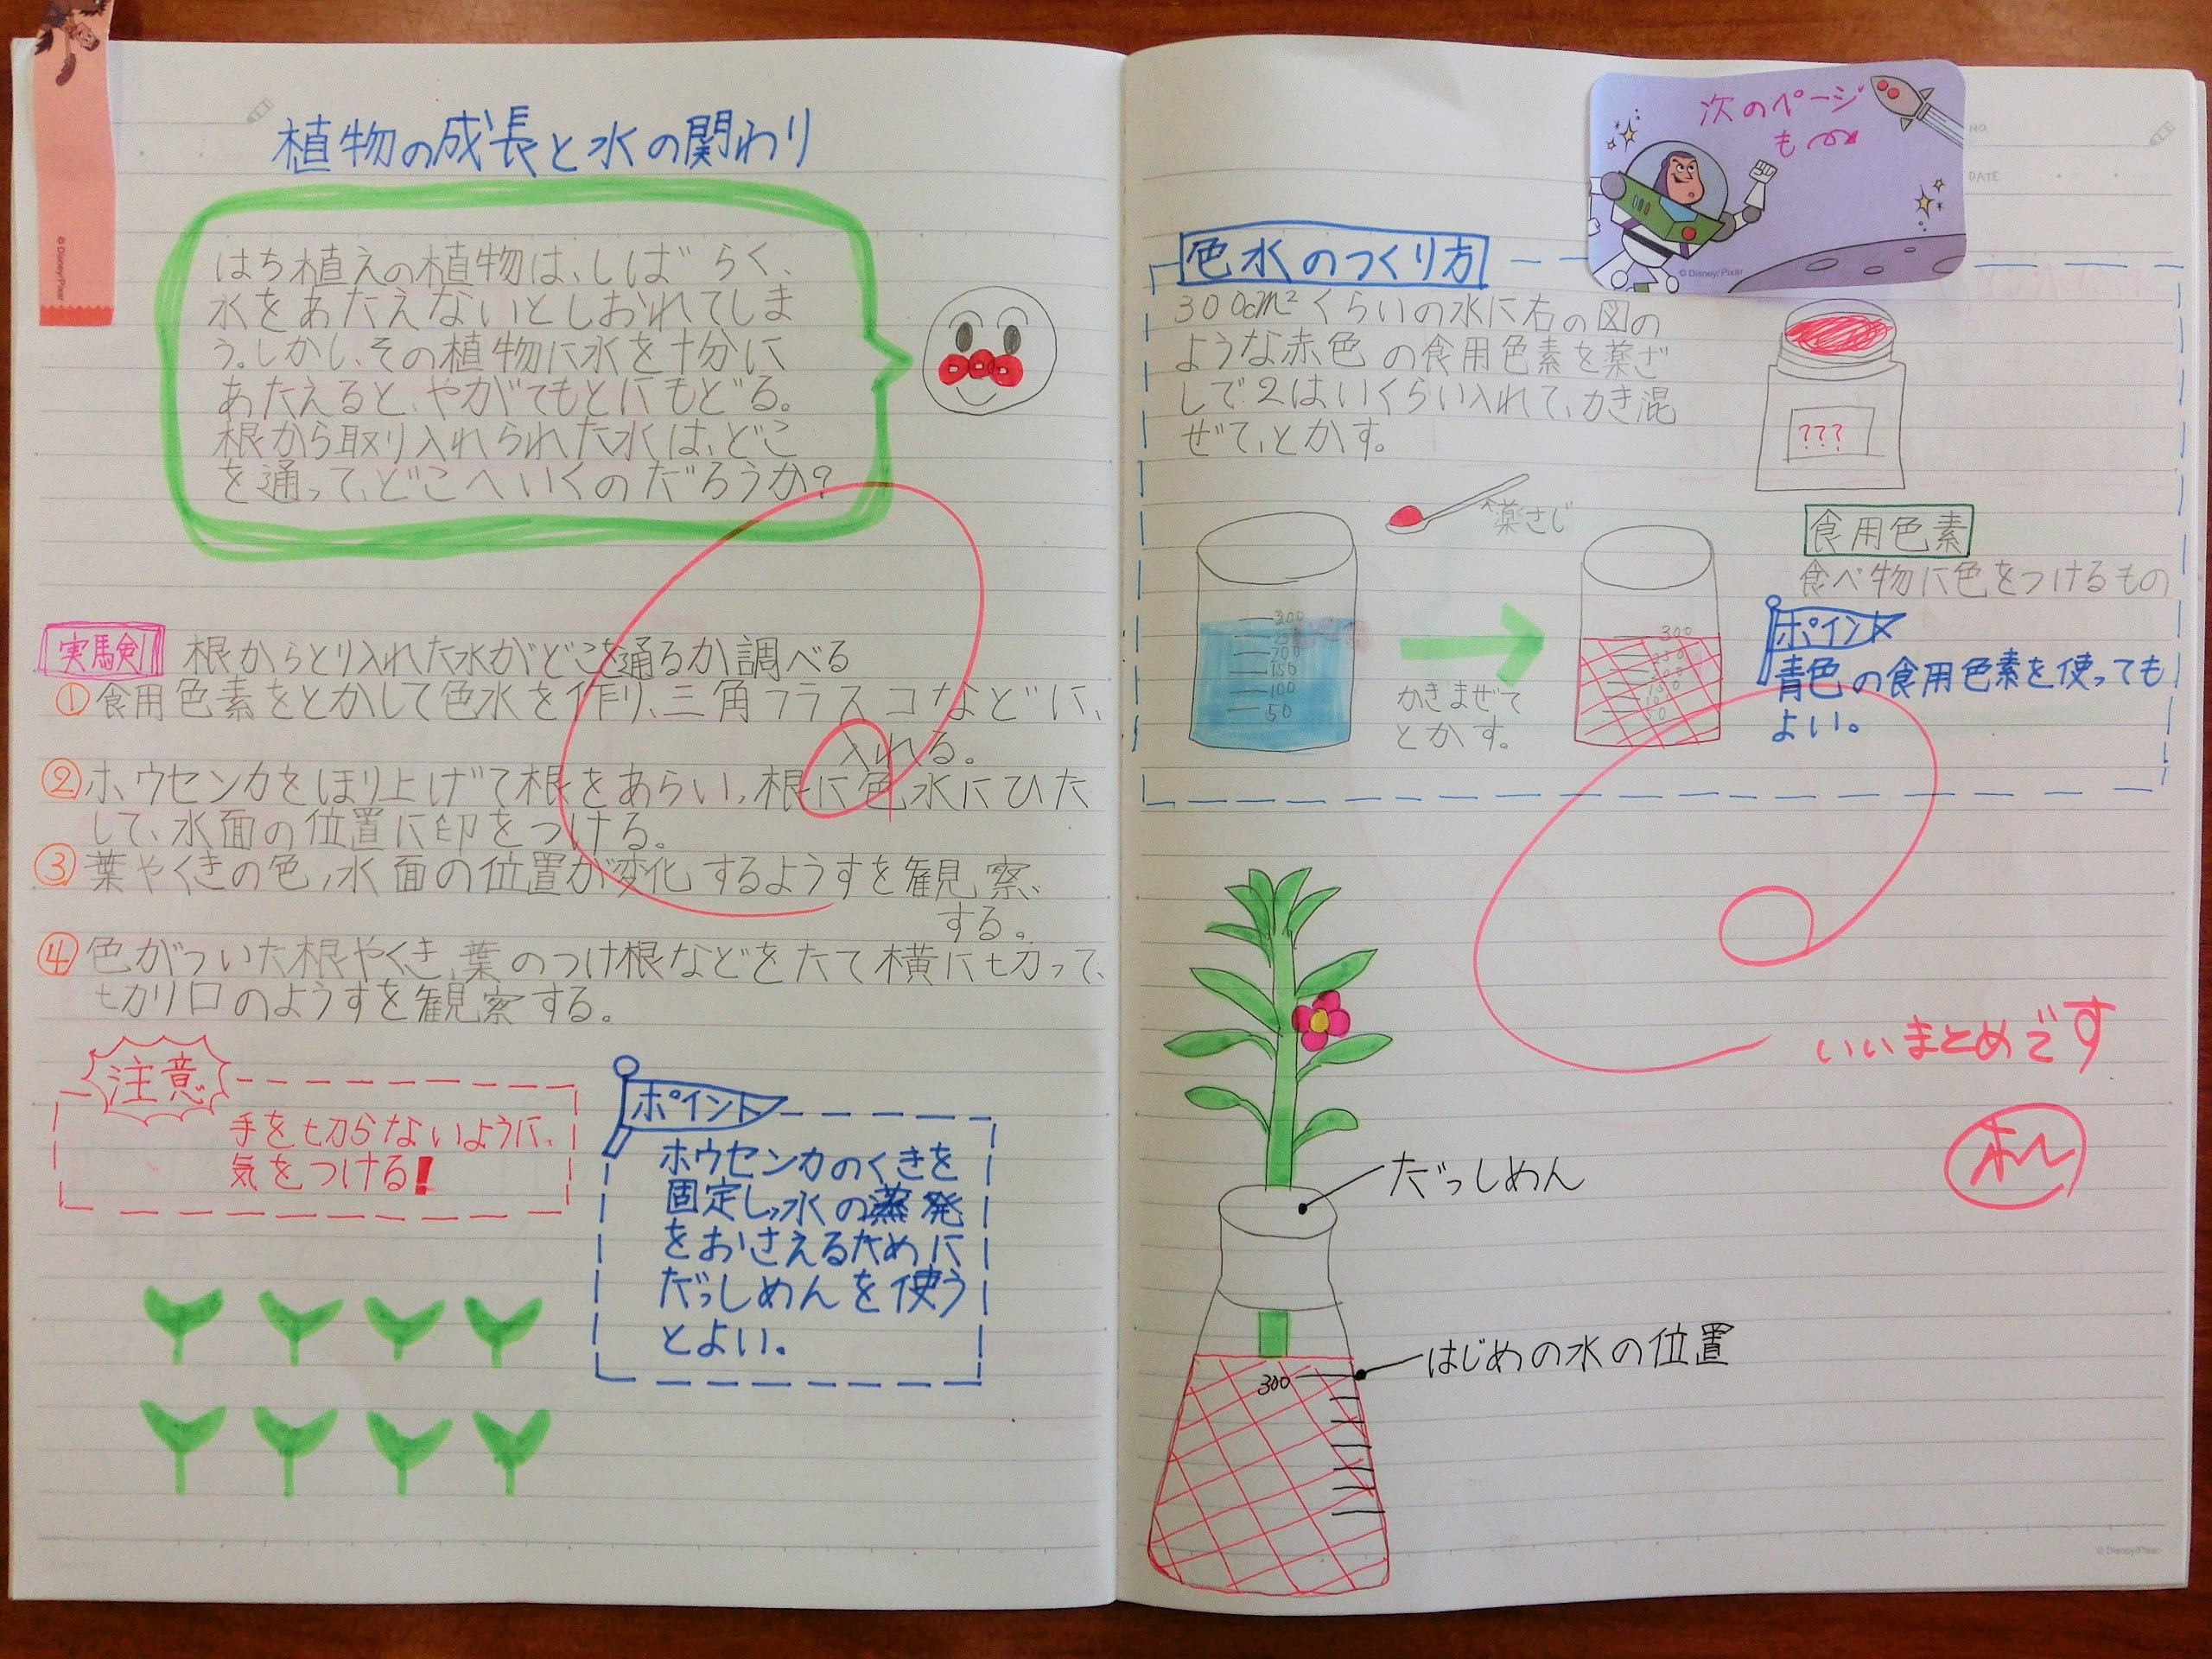 植物の成長と水の関わり
はち植えの植物は、しばらく、
水をあたえないとしおれてしま
う。しかし、その植物に水を十分に
あたえると、やがてもとにもどる。
根から取り入れられた水は、どこ
を通って、どこへいくのだろうか?
実験 根からとり入れた水がどこを通るか調べる
①食用色素をとかして色水を作り、三角フラスコなどに、
入れる。
②ホウセンカをほり上げて根をあらい、根に色水にひた
して、水面の位置に印をつける。
③葉やくきの色、水面の位置が変化するようすを観察
する。
④色がついた根やくき、葉のつけ根などをたて横に切って、
切り口のようすを観察する。
注意
手を切らないように、
気をつける!
ポイント
ホウセンカのくきを
固定し、水の蒸発
をおさえるために
だっしめんを使う
とよい。
© Disney/Pixar
次のページ
も
© Disney/Pixar
NO.
DATE
色水のつくり方
300cm²くらいの水に右の図の
ような赤色の食用色素を薬さ
じで2はいくらい入れて、かき混
ぜて、とかす。
???
薬さじ
食用色素
食べ物に色をつけるもの
ポイント
青色の食用色素を使っても
よい。
300
250
200
150
100
50
かきまぜて
とかす。
300
250
200
150
100
50
いいまとめです
だっしめん
はじめの水の位置
300
© Disney/Pixar